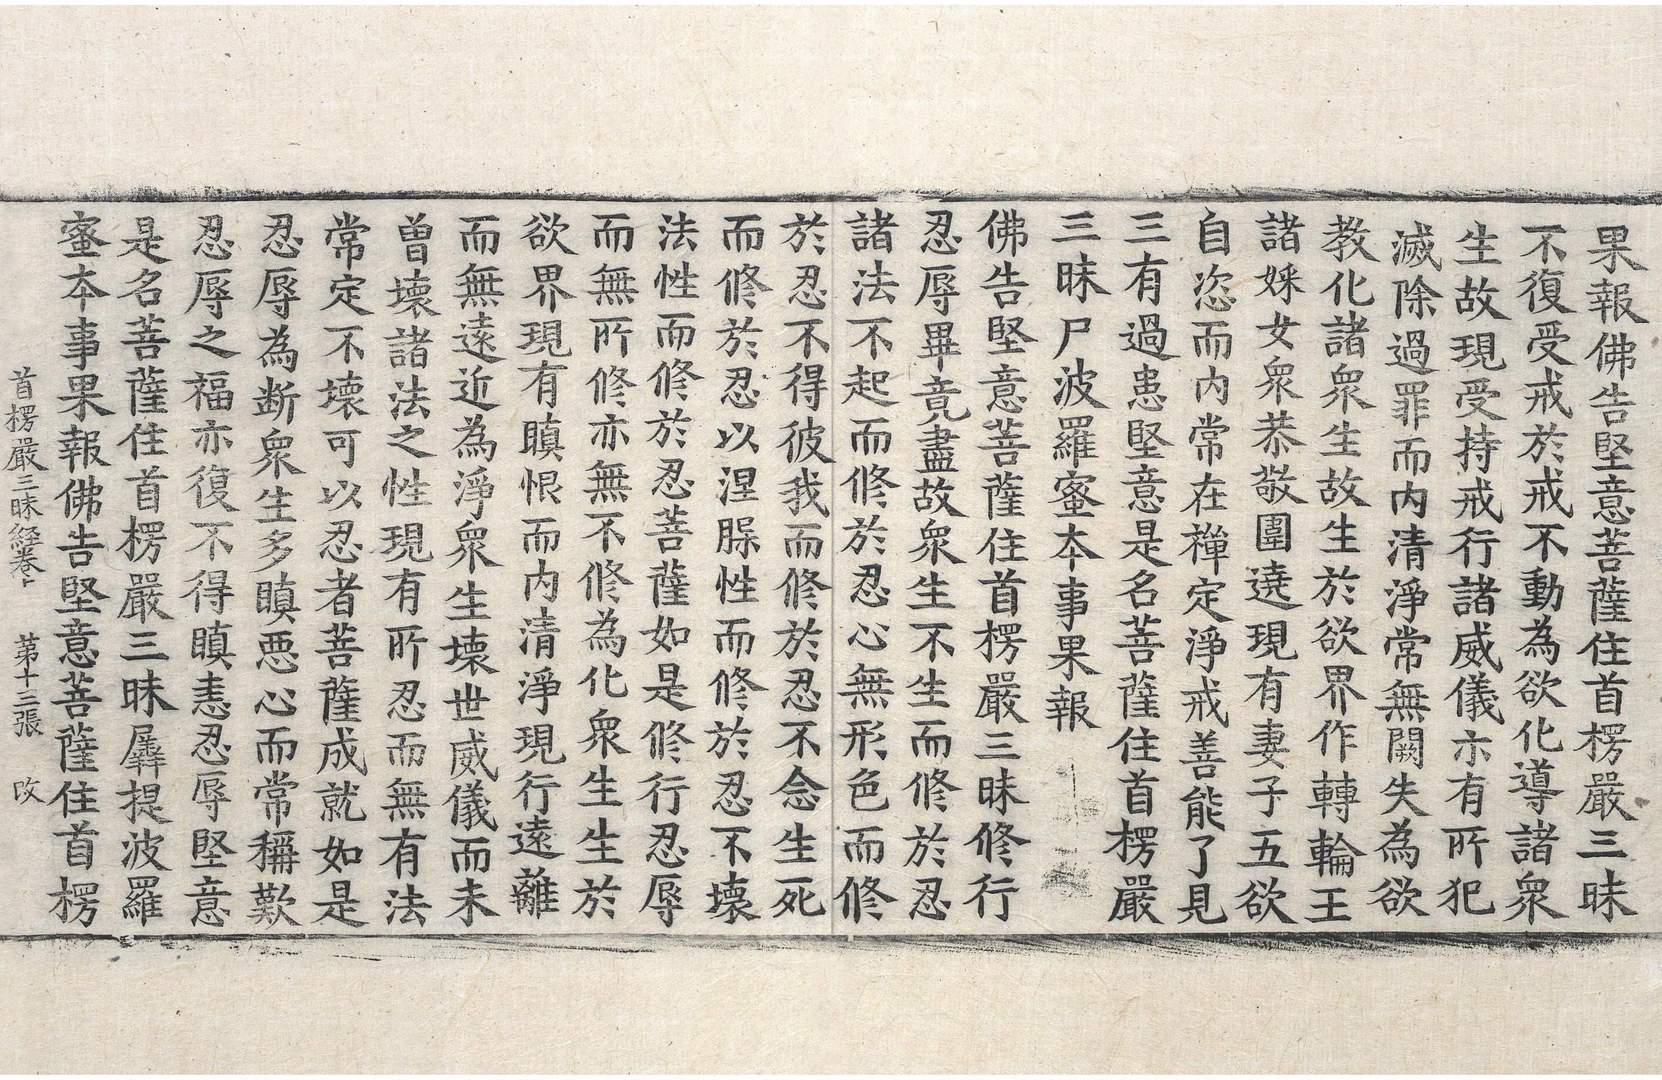 果報佛告堅意菩薩住首楞嚴三昧
不復受戒於戒不動為欲化導諸衆
生故現受持戒行諸威儀示有所犯
滅除過罪而內清淨常無闕失為欲
教化諸衆生故生於欲界作轉輪王
諸婇女衆恭敬圍遶現有妻子五欲
自恣而內常在禪定淨戒善能了見
三有過患堅意是名菩薩住首楞嚴
三昧尸波羅蜜本事果報
佛告堅意菩薩住首楞嚴三昧修行
忍辱畢竟盡故衆生不生而修於忍
諸法不起而修於忍心無形色而修
於忍不得彼我而修於忍不念生死
而修於忍以涅槃性而修於忍不壞
法性而修於忍菩薩如是修行忍辱
而無所修亦無不修為化衆生生於
欲界現有瞋恨而內清淨現行遠離
而無遠近為淨衆生壞世威儀而未
曾壞諸法之性現有所忍而無有法
常定不壞可以忍者菩薩成就如是
忍辱為断衆生多瞋悪心而常稱歎
忍辱之福亦復不得瞋恚忍辱堅意
是名菩薩住首楞嚴三昧羼提波羅
蜜本事果報佛告堅意菩薩住首楞
首楞嚴三昧経卷上 苐十三張